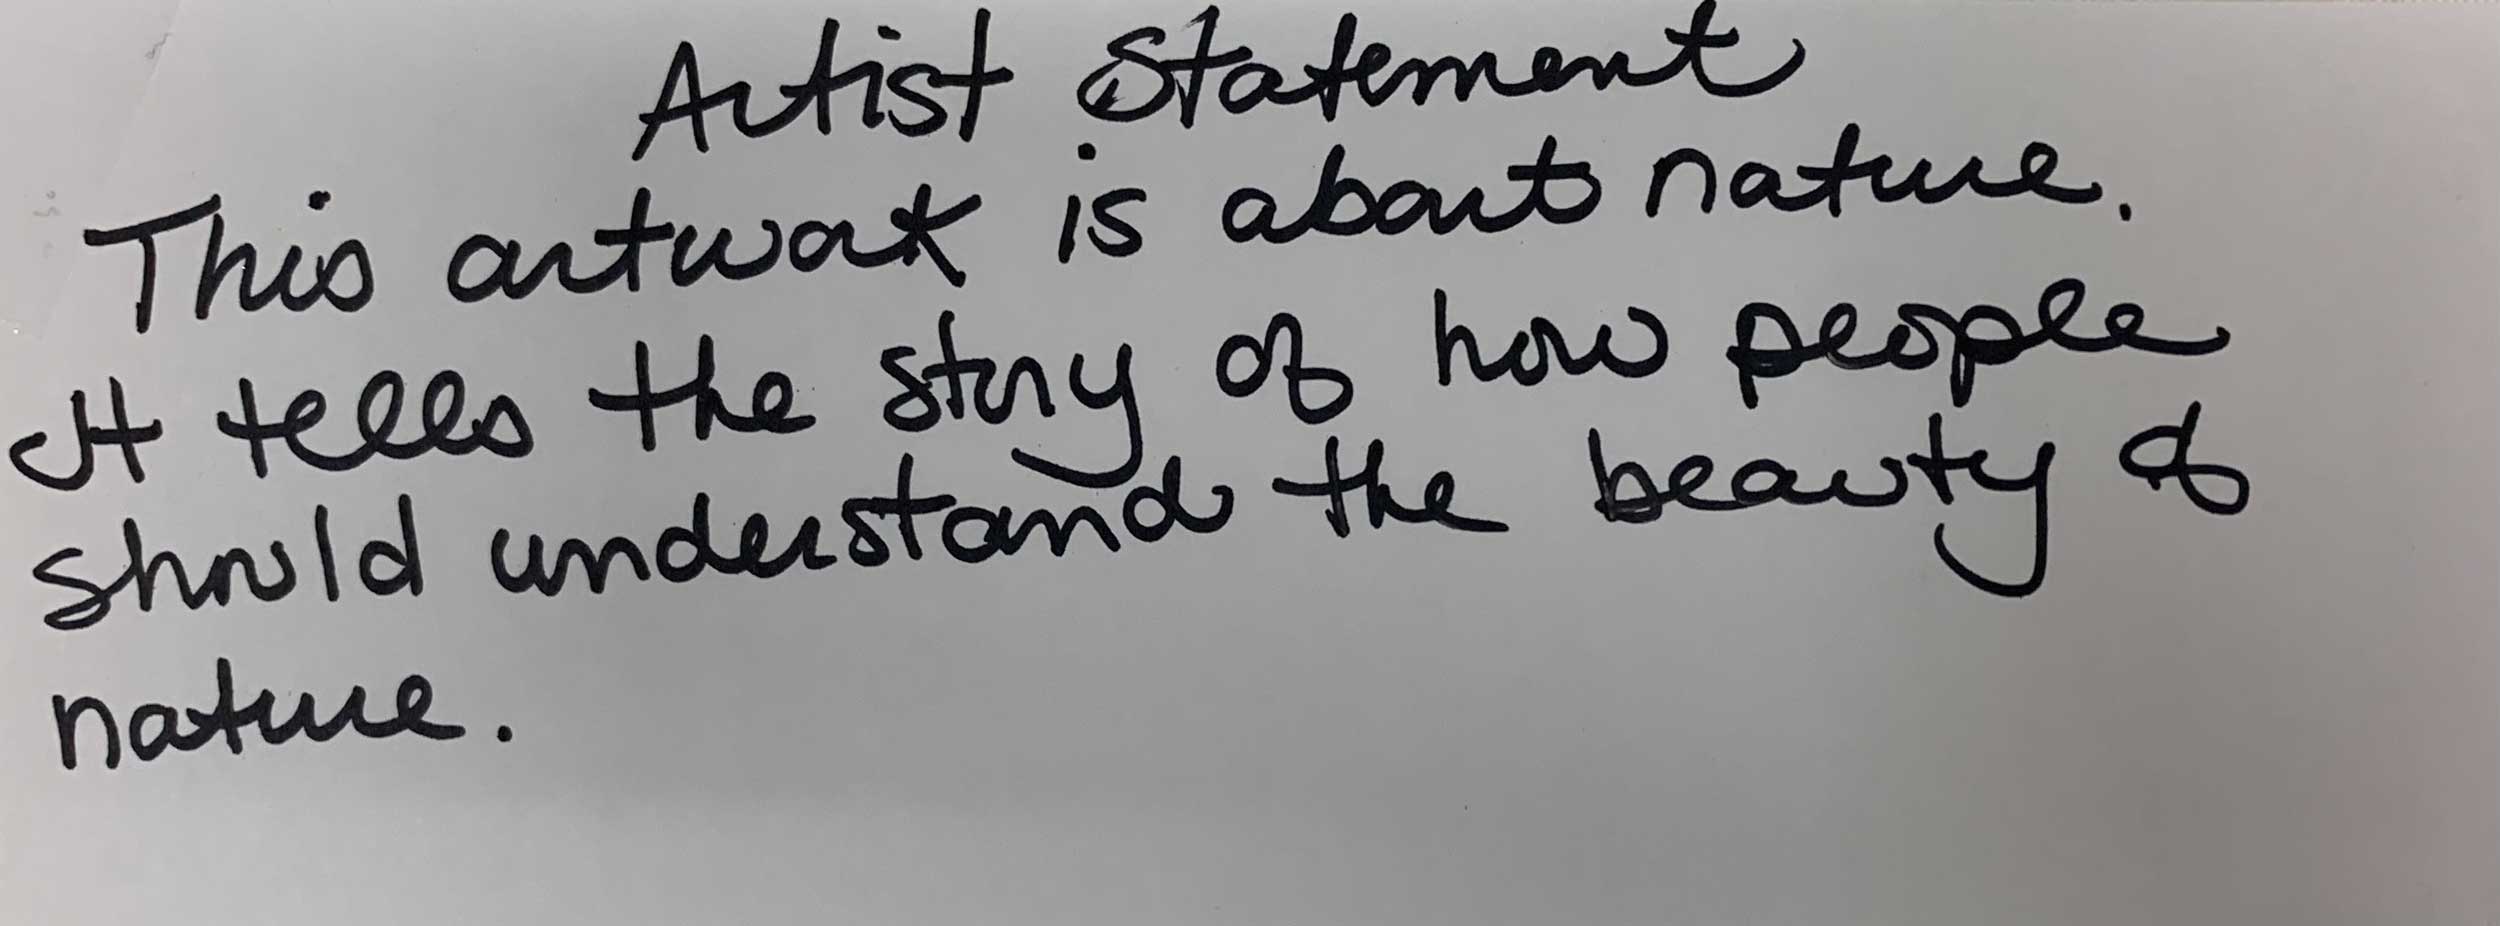 Artist Statement
This artwork is about nature.
It tells the story of how people
should understand the beauty of
nature.